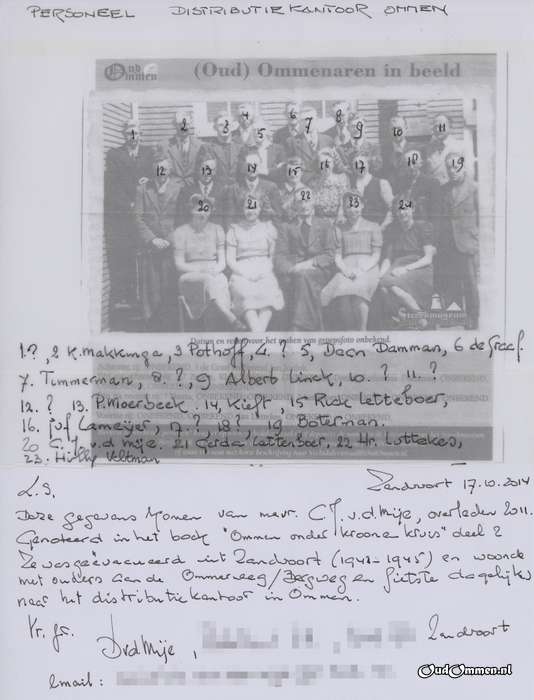 PERSONEEL DISTRIBUTIEKANTOOR OMMEN
Oud Ommen
(Oud) Ommenaren in beeld
1 2 3 4 5 6 7 8 9 10 11
12 13 14 15 16 17 18 19
20 21 22 23 24
Streekmuseum
Datum en reden voor het maken van groepsfoto onbekend.
1.?, 2 K. Makkinga, 3 Pothoff, 4. ? 5, Daan Damman, 6 de Graaf
7. Timmerman, 8. ?, 9 Albert Linck, 10. ? 11. ?
12. ? 13. P. Moerbeek. 14, Kieft, 15 Riek Letteboer,
16. juf Lameijer, 17. ?, 18?, 19 Boterman.
20 C.J. v.d. Mije. 21 Gerda Latterboer, 22 Hr. Luttekes,
23. Hilly Veltman
L.S. Zandvoort 17.10.2014
Deze gegevens komen van mevr. C.J. v.d. Mije, overleden 2011.
Genoteerd in het boek "Ommen onder kroon en kruis" deel 2
Ze was geëvacueerd uit Zandvoort (1943-1945) en woonde
met ouders aan de Ommerweg/Bergweg en fietste dagelijks
naar het distributiekantoor in Ommen.
Vr. gr. DvdMije, Zandvoort
email:
OudOmmen.nl